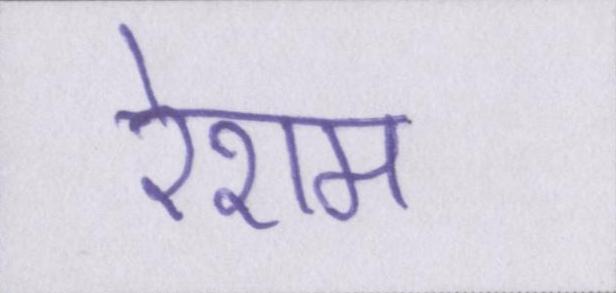 रेशम